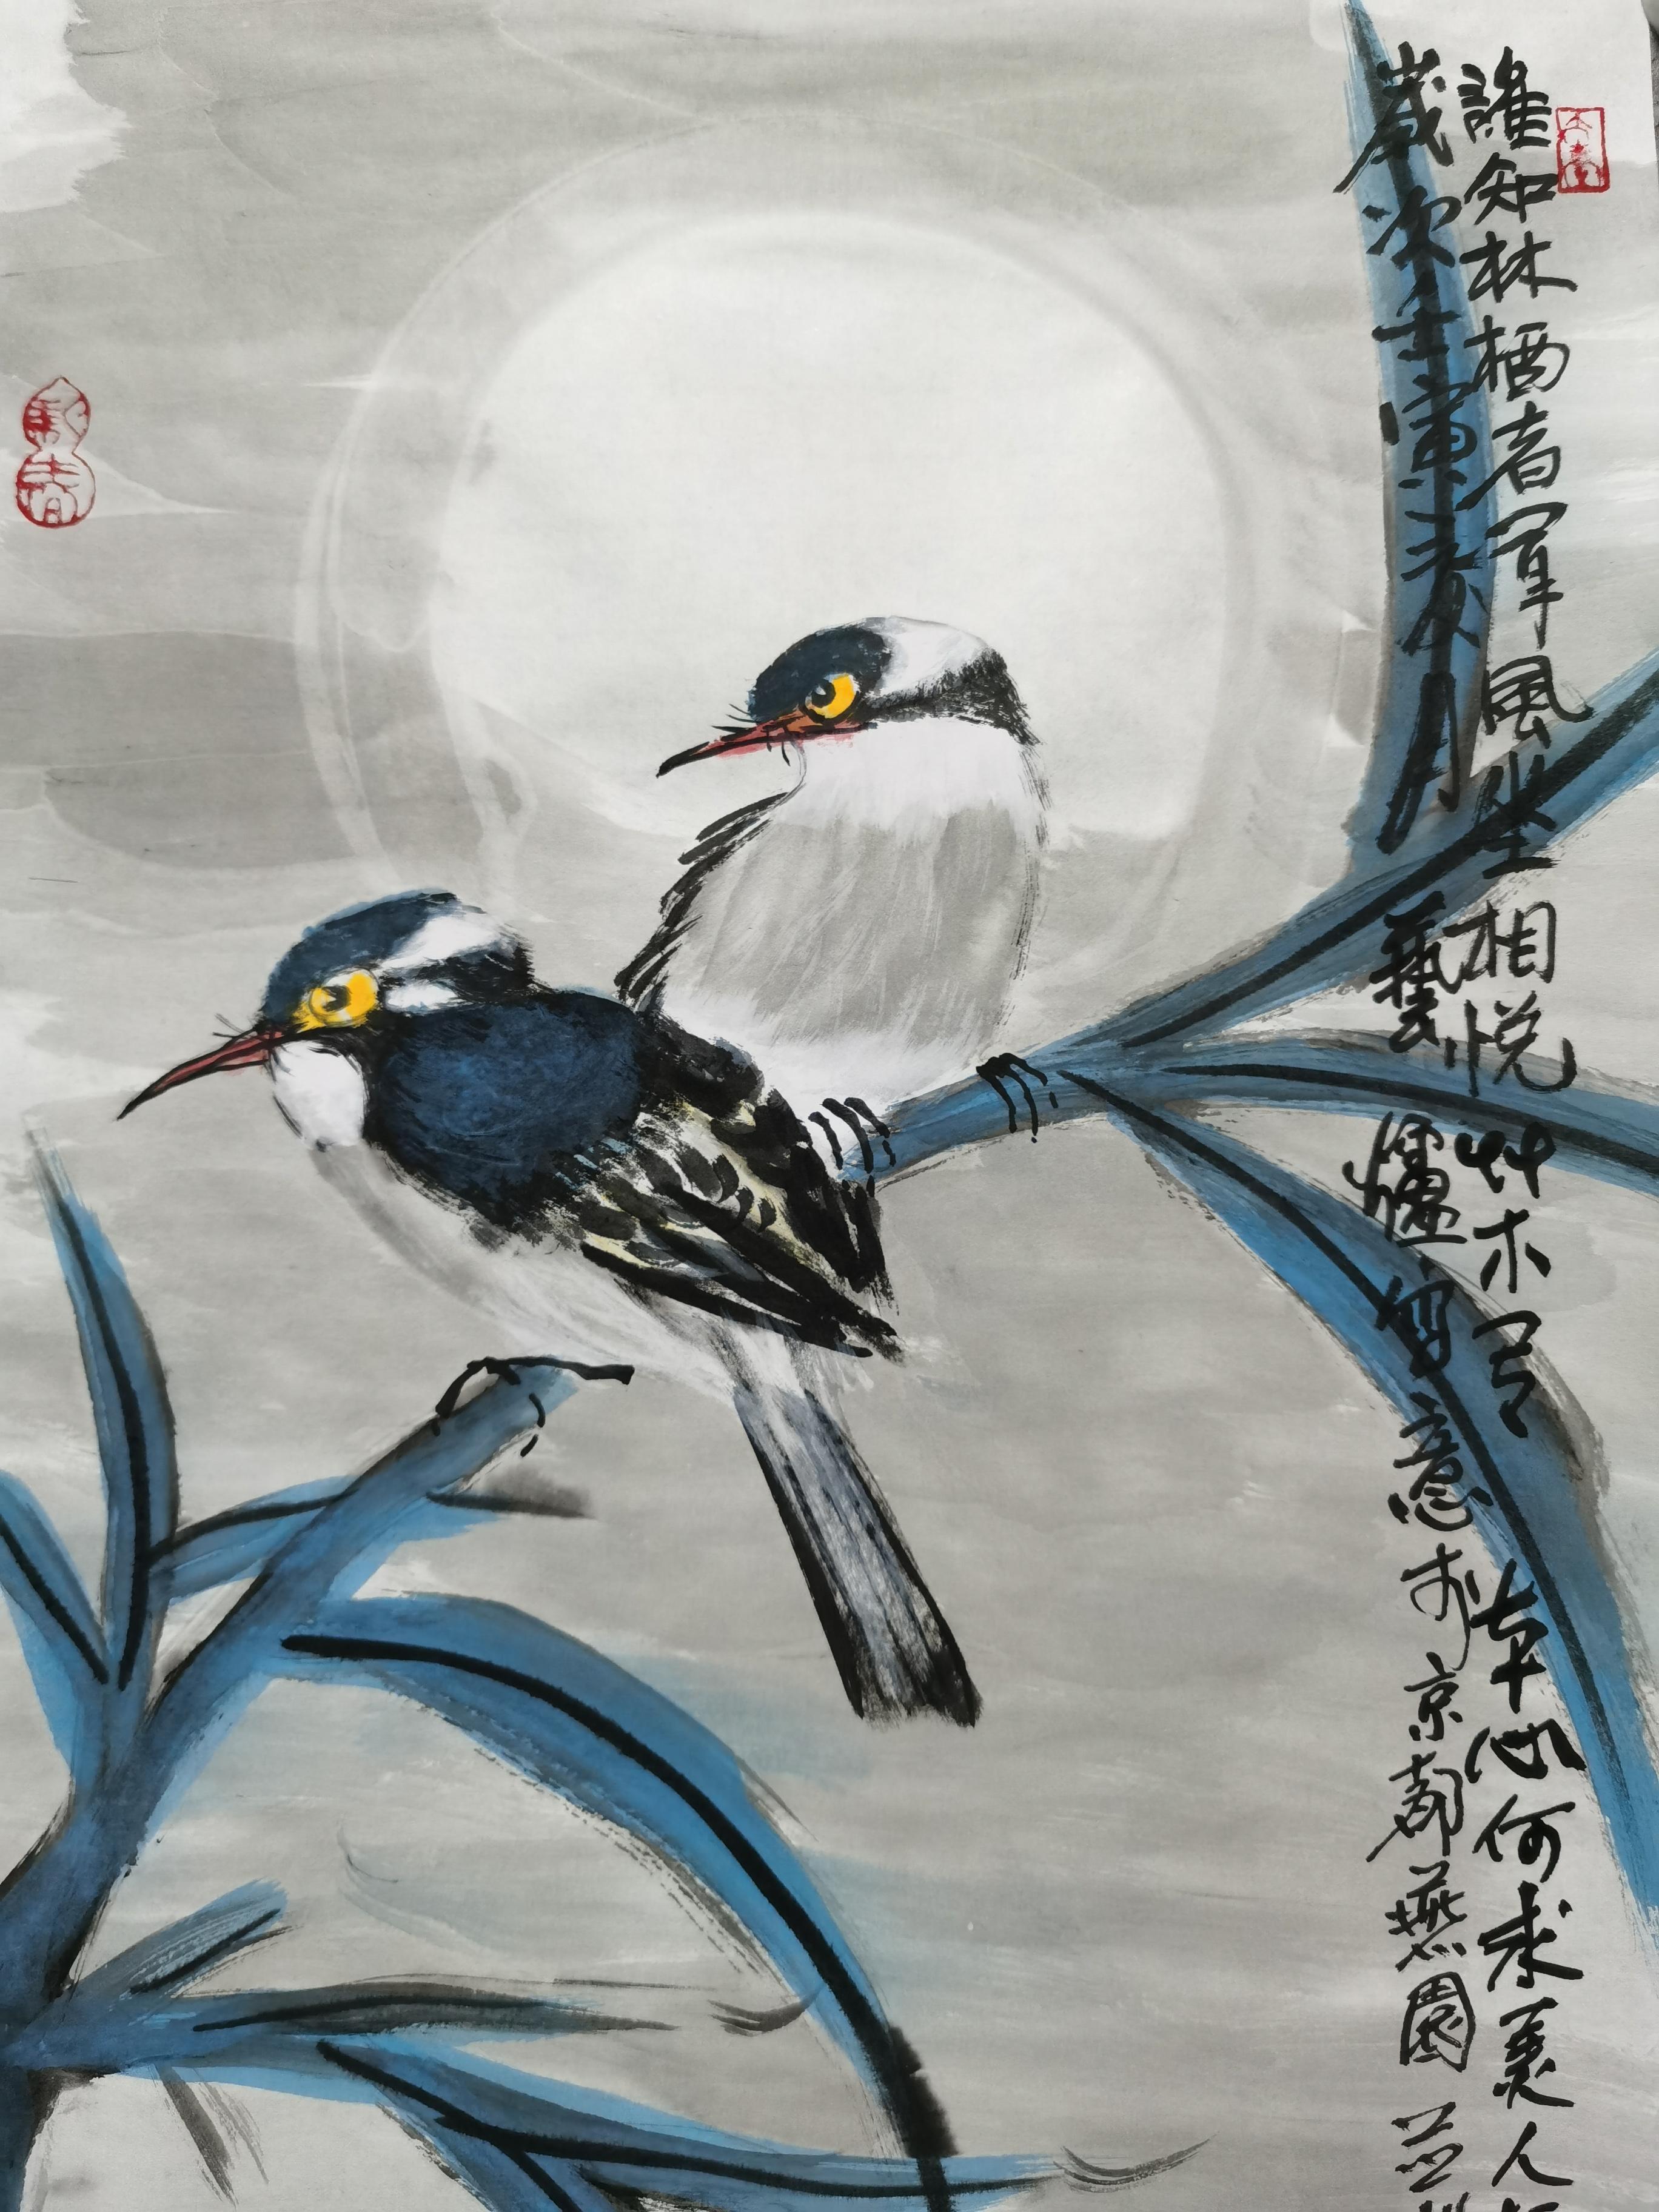 誰知林栖者聞風坐相悅草木有本心何求美人折
歲次壬寅春月 藝 寫意于京郊燕園並